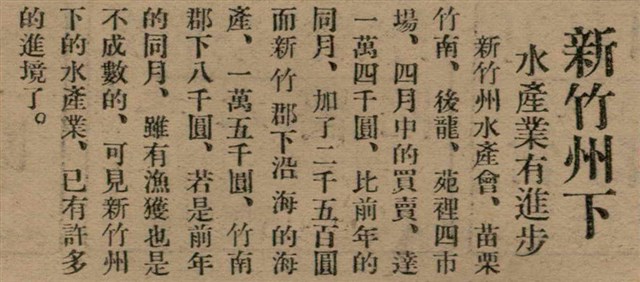 新竹州下
水產業有進步
新竹州水產會、苗栗
竹南、後龍、苑裡四市
場、四月中的買賣、達
一萬四千圓、比前年的
同月、加了二千五百圓
而新竹郡下沿海的海
產、一萬五千圓、竹南
郡下八千圓、若是前年
的同月、雖有漁獲也是
不成數的、可見新竹州
下的水產業、已有許多
的進境了。